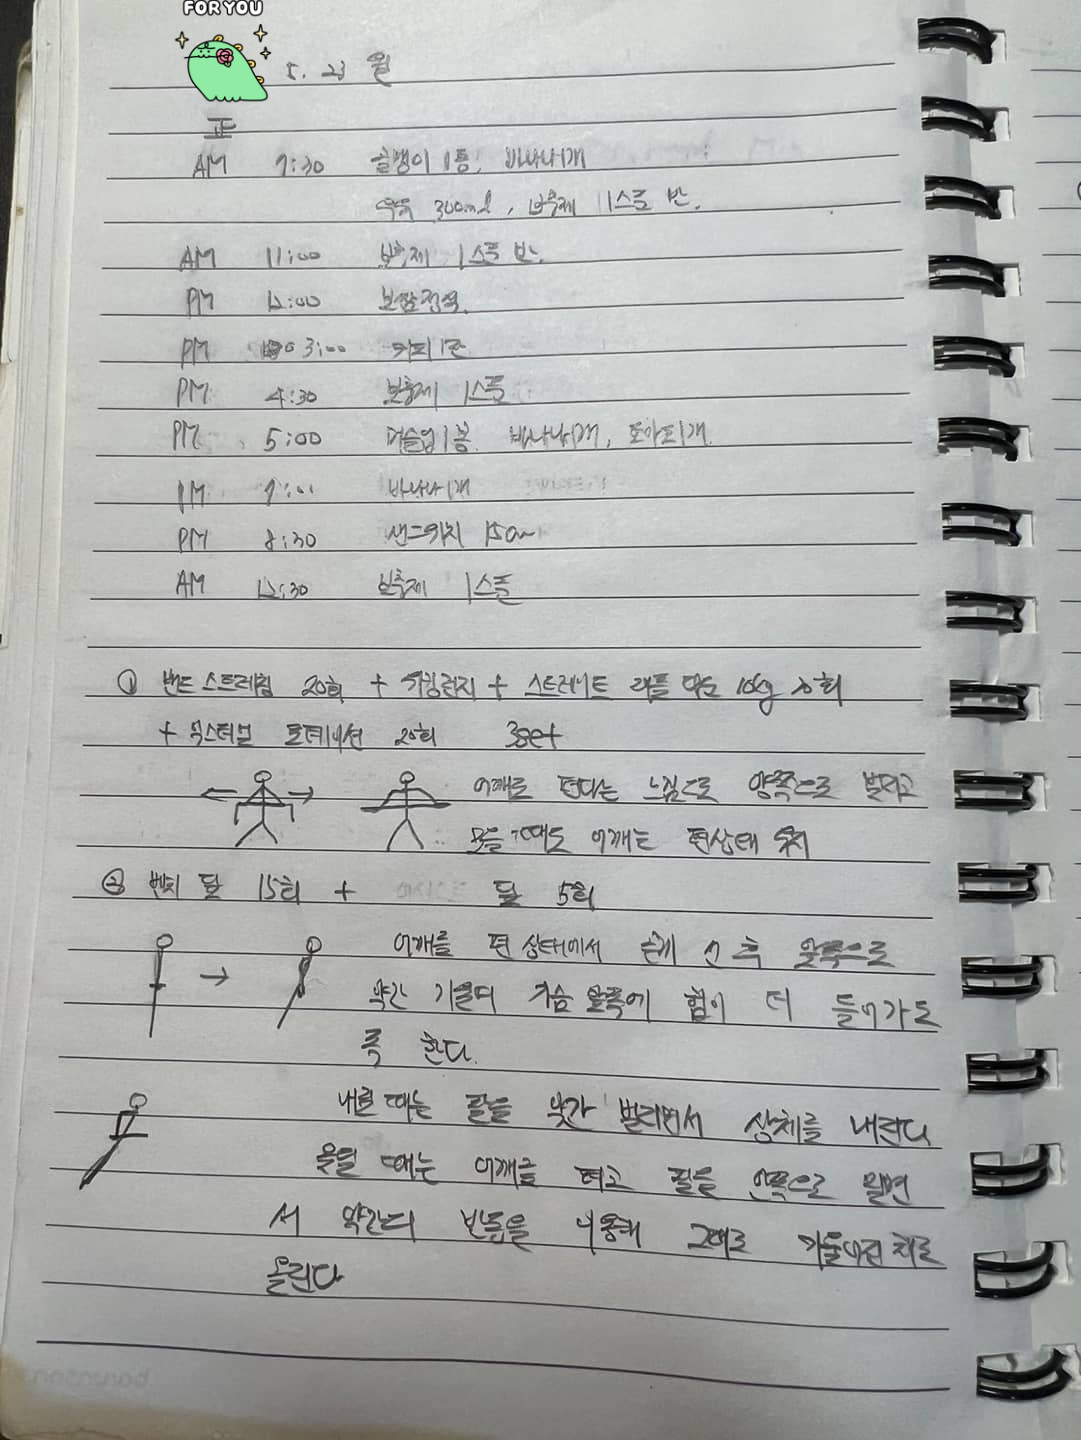 FOR YOU
5. 23 월
正
AM 7:30 골뱅이 1통, 바나나1개
우유 300ml, 보충제 1스쿱 반.
AM 11:00 보충제 1스쿱 반.
PM 12:00 보쌈정식.
PM 3:00 커피 1잔
PM 4:30 보충제 1스쿱
PM 5:00 머슬업1봉 바나나1개, 토마토1개.
PM 7:00 바나나1개
PM 8:30 샌드위치 15cm
AM 12:30 보충제 1스쿱
① 밴드 스트레칭 20회 + 워킹런지 + 스트레이트 10kg 20회
+ 익스터널 로테이션 20회 3set
어깨를 편다는 느낌으로 양쪽으로 벌리고
모을 때도 어깨는 편상태 유지
② 벤치 딥 15회 + 딥 5회
어깨를 편 상태에서 곧게 선 후 앞쪽으로
약간 기울여 가슴 앞쪽에 힘이 더 들어가도
록 한다.
내릴 때는 팔을 약간 벌리면서 상체를 내린다
올릴 때는 어깨를 펴고 팔을 안쪽으로 밀면
서 약간의 반동을 이용해 그대로 기울어진 채로
올린다